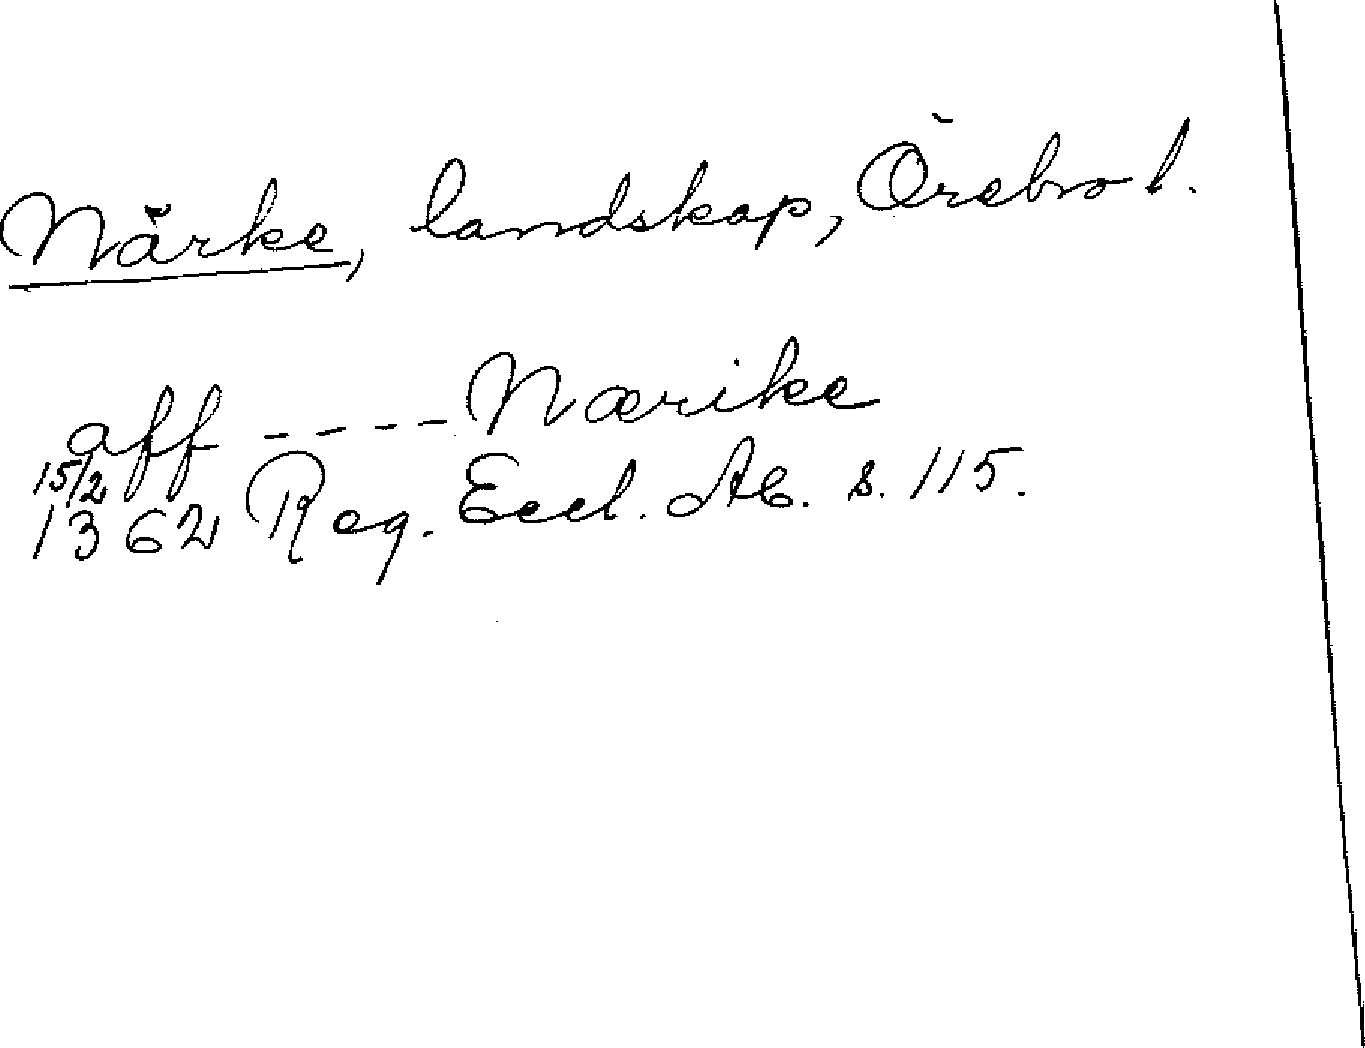 Närke, landskap, Örebro l.
aff ---- Nærike
15/2
1362 Reg. Eccl. Ab. s. 115.